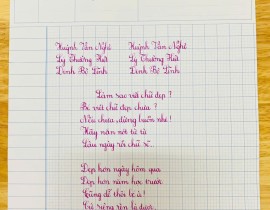 Huỳnh Văn Nghệ Huỳnh Văn Nghệ
Lý Thường Kiệt Lý Thường Kiệt
Đinh Bộ Lĩnh Đinh Bộ Lĩnh
Làm sao viết chữ đẹp ?
Bé viết chữ đẹp chưa ?
Nếu chưa, đừng buồn nhé !
Hãy nắn nót từ từ
Lâu ngày rồi chữ sẽ.
Đẹp hơn ngày hôm qua
Đẹp hơn năm học trước
Cũng dễ thôi bé à !
Cứ siêng rèn là được.